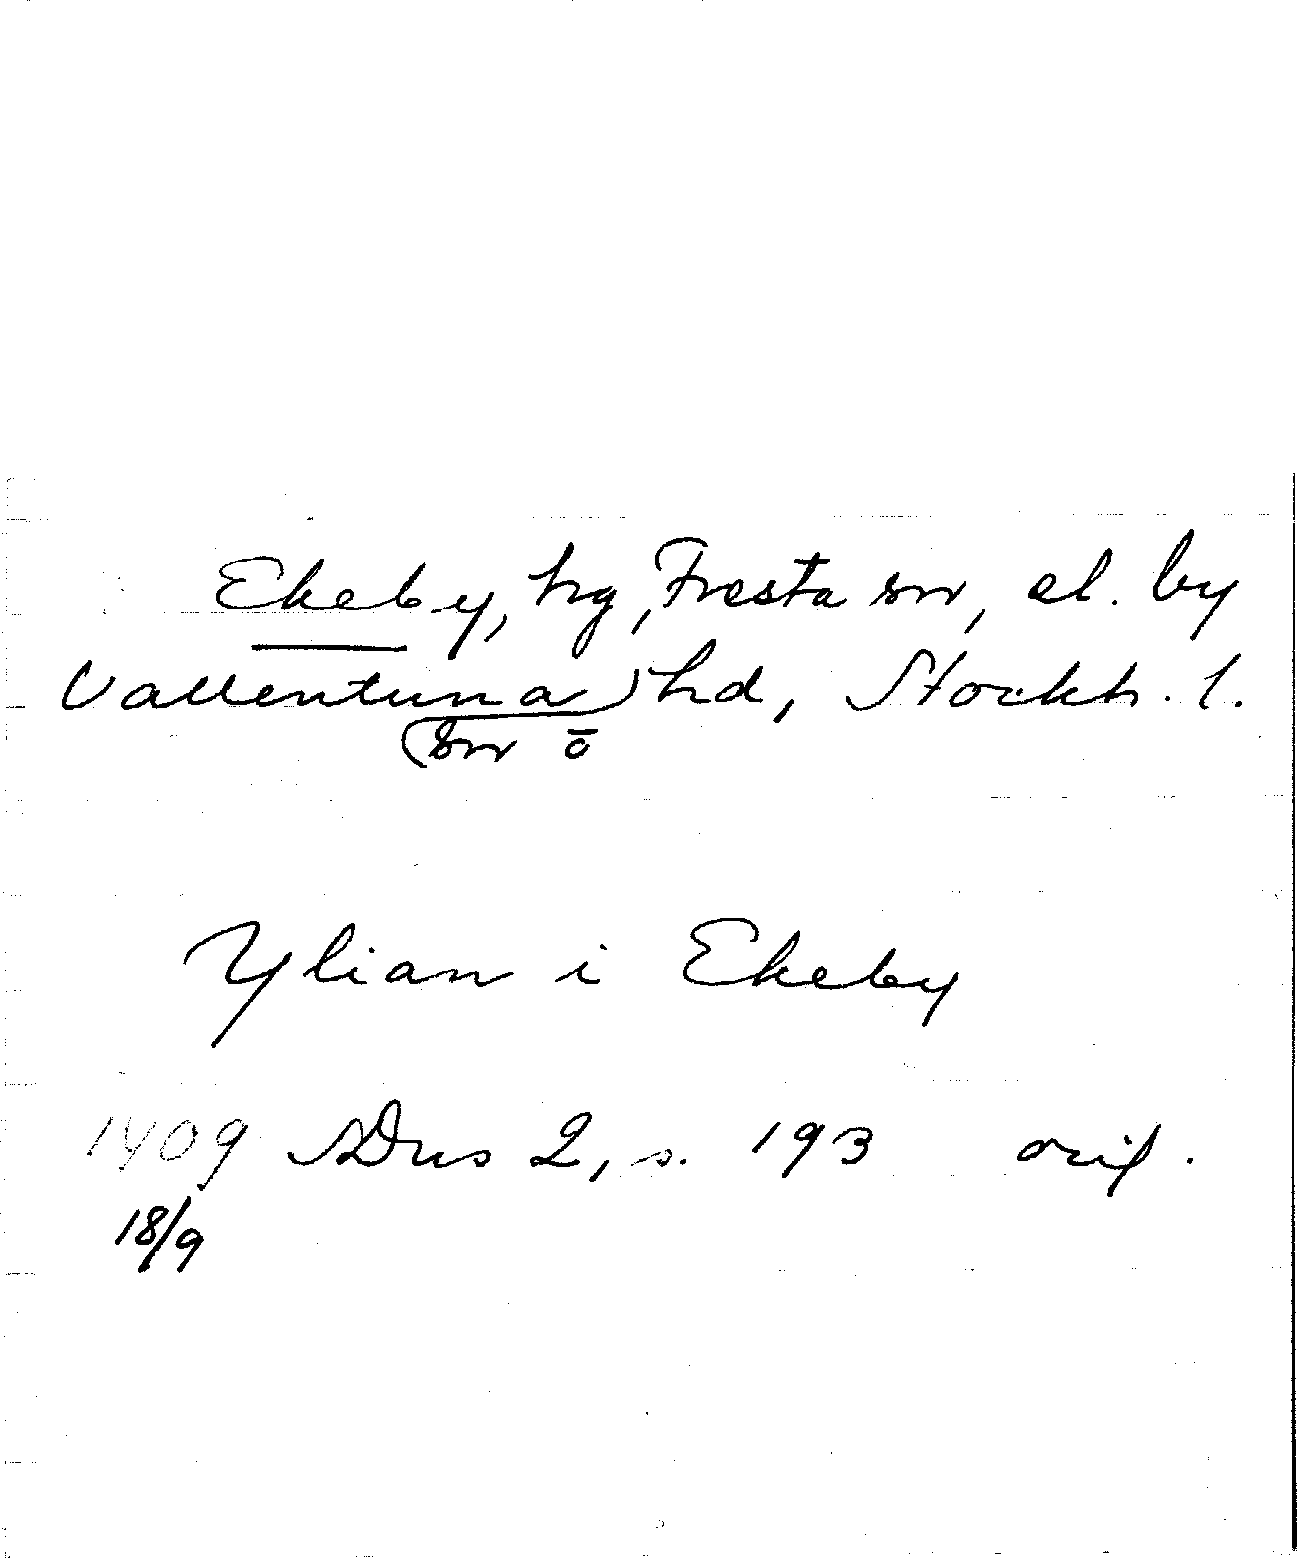 Ekeby, hg, Fresta sn, el. by
Vallentuna hd, Stockh. l.
sn o
Ylian i Ekeby
1409 SDns 2, s. 193 orig.
18/9